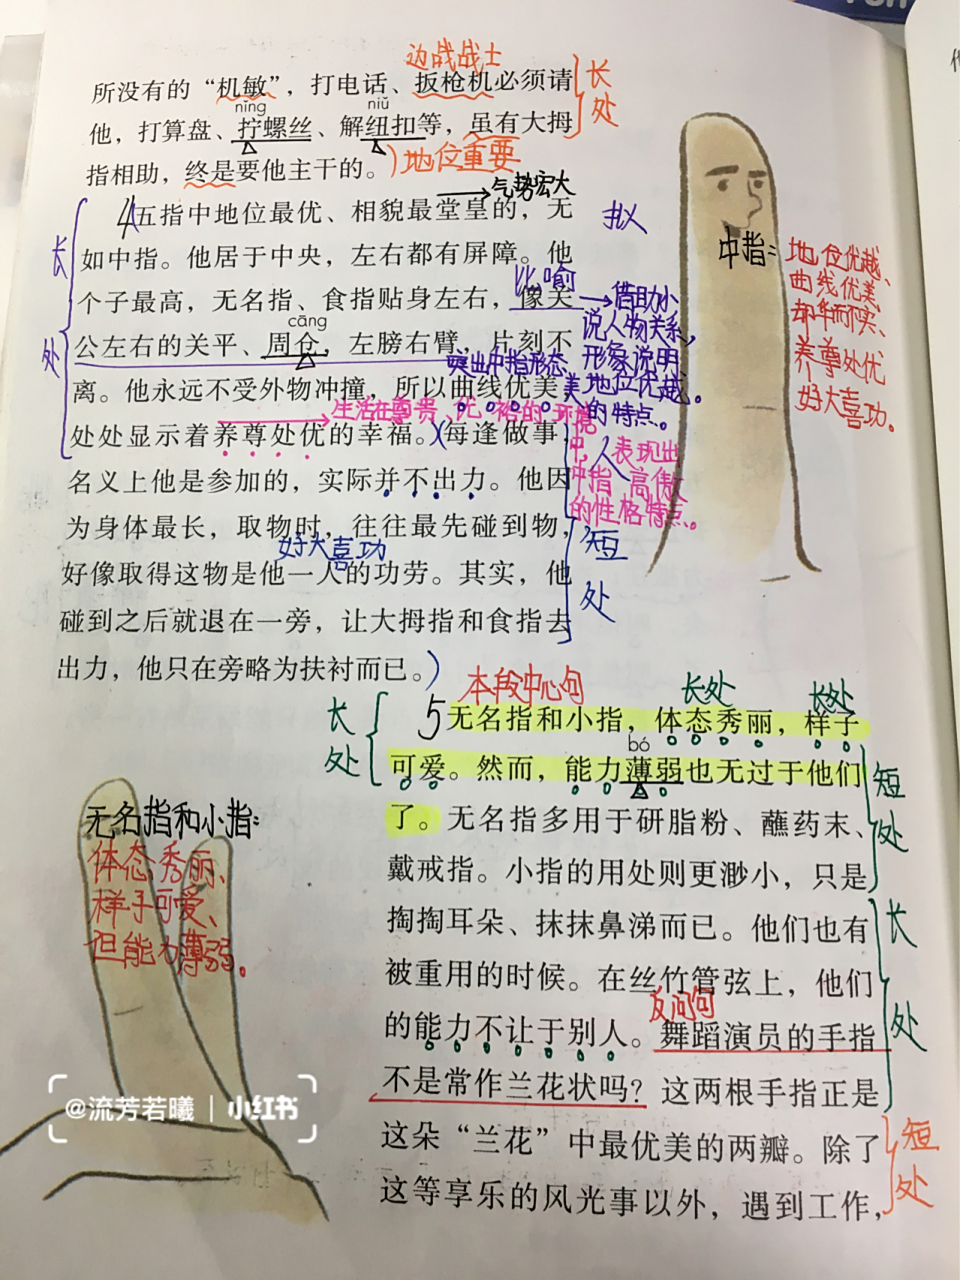 边战战士
所没有的“机敏”，打电话、扳枪机必须请
长处
nǐng niǔ
他，打算盘、拧螺丝、解纽扣等，虽有大拇
指相助，终是要他主干的。
地位重要
气势宏大
4 五指中地位最优、相貌最堂皇的，无
拟
长处
如中指。他居于中央，左右都有屏障。他
比喻
个子最高，无名指、食指贴身左右，像关
cāng
公左右的关平、周仓，左膀右臂，片刻不
借助小
说人物关系，
形象说明
地位优越。
的特点。
突出中指形态美
离。他永远不受外物冲撞，所以曲线优美，
生活在尊贵、优裕的环境
中，人表现出
中指高傲
的性格特点。
处处显示着养尊处优的幸福。（每逢做事，
名义上他是参加的，实际并不出力。他因
为身体最长，取物时，往往最先碰到物，
好大喜功
短处
好像取得这物是他一人的功劳。其实，他
碰到之后就退在一旁，让大拇指和食指去
出力，他只在旁略为扶衬而已。）
中指：
地位优越、
曲线优美、
却华而不实、
养尊处优
好大喜功。
本段中心句
长处
长处
长处
5 无名指和小指，体态秀丽，样子
bó
可爱。然而，能力薄弱也无过于他们
短处
了。无名指多用于研脂粉、蘸药末、
戴戒指。小指的用处则更渺小，只是
掏掏耳朵、抹抹鼻涕而已。他们也有
长处
被重用的时候。在丝竹管弦上，他们
反问句
的能力不让于别人。舞蹈演员的手指
不是常作兰花状吗？这两根手指正是
这朵“兰花”中最优美的两瓣。除了
短处
这等享乐的风光事以外，遇到工作，
无名指和小指：
体态秀丽、
样子可爱、
但能力薄弱。
@流芳若曦 | 小红书